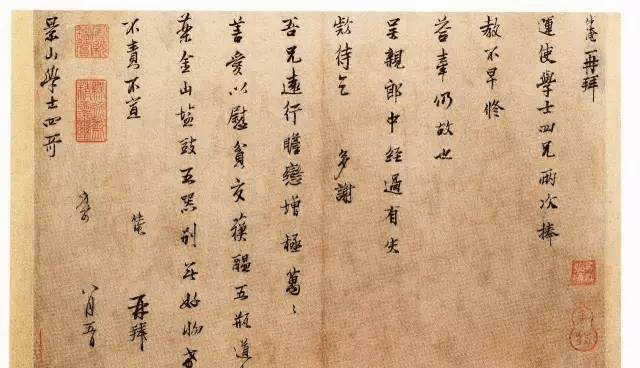 再拜
運使學士四兄兩次捧
教不早修
答牽仍故也
吴親郎中經過有失
欵待乞 多謝
吾兄遠行瞻戀增極萬〻
善愛以慰貧交醖五瓶道
金山塩豉五器别無好物
不責不宣 再拜
八月五日
景山學士四哥